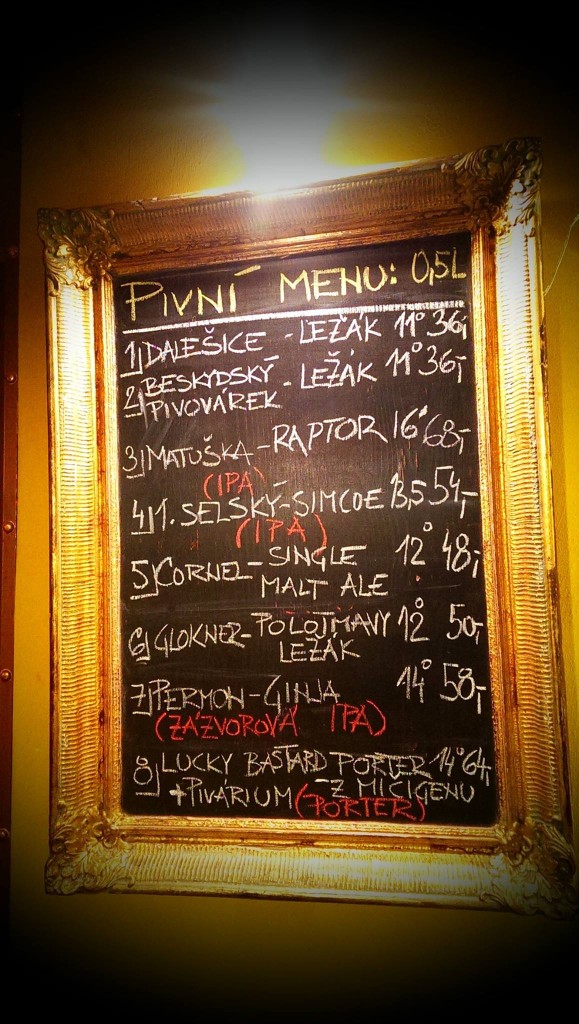 PIVNÍ MENU: 0,5L
1) DALEŠICE - LEŽÁK 11° 36,-
2) BESKYDSKÝ - LEŽÁK 11° 36,-
PIVOVÁREK
3) MATUŠKA - RAPTOR 16° 68,-
(IPA)
4) 1. SELSKÝ - SIMCOE 13,5 54,-
(IPA)
5) CORNEL - SINGLE 12° 48,-
MALT ALE
6) GLOKNER - POLOTMAVÝ 12° 50,-
LEŽÁK
7) PERMON - GINJA 14° 58,-
(ZÁZVOROVÁ IPA)
8) LUCKY BASTARD PORTER 14° 64,-
+ PIVÁRIUM - Z MICIGENU
(PORTER)